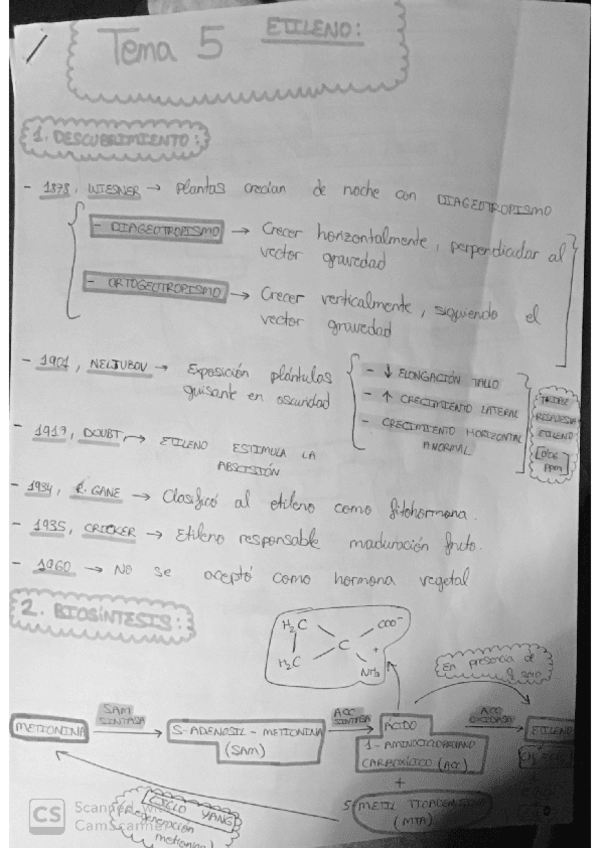 Tema 5
ETILENO:
1. DESCUBRIMIENTO:
- 1878, WIESNER → Plantas crecían de noche con DIAGEOTROPISMO
- DIAGEOTROPISMO → Crecer horizontalmente, perpendicular al
vector gravedad
- ORTOGEOTROPISMO → Crecer verticalmente, siguiendo el
vector gravedad
- 1901, NELJUBOV → Exposición plántulas
guisante en oscuridad
- ↓ ELONGACIÓN TALLO
- ↑ CRECIMIENTO LATERAL
- CRECIMIENTO HORIZONTAL
ANORMAL
TRIPLE
RESPUESTA
ETILENO
ppm
- 1917, DOUBT, → ETILENO ESTIMULA LA
ABSCISIÓN
- 1934, R. GANE → Clasificó al etileno como fitohormona.
- 1935, CROCKER → Etileno responsable maduración fruto.
- 1960 → No se aceptó como hormona vegetal
2. BIOSÍNTESIS:
H₂C
C
COO⁻
H₂C
+
NH₃
En presencia de
SAM
SINTASA
ACC
SINTASA
ACC
OXIDASA
METIONINA → S-ADENOSIL-METIONINA → ÁCIDO → ETILENO
(SAM)
1-AMINOCICLOPROPANO
CARBOXÍLICO (ACC)
+
5 METIL TIOADENOSINA
(MTA)
CICLO YANG
Regeneración
metionina
CS Scanned with
CamScanner